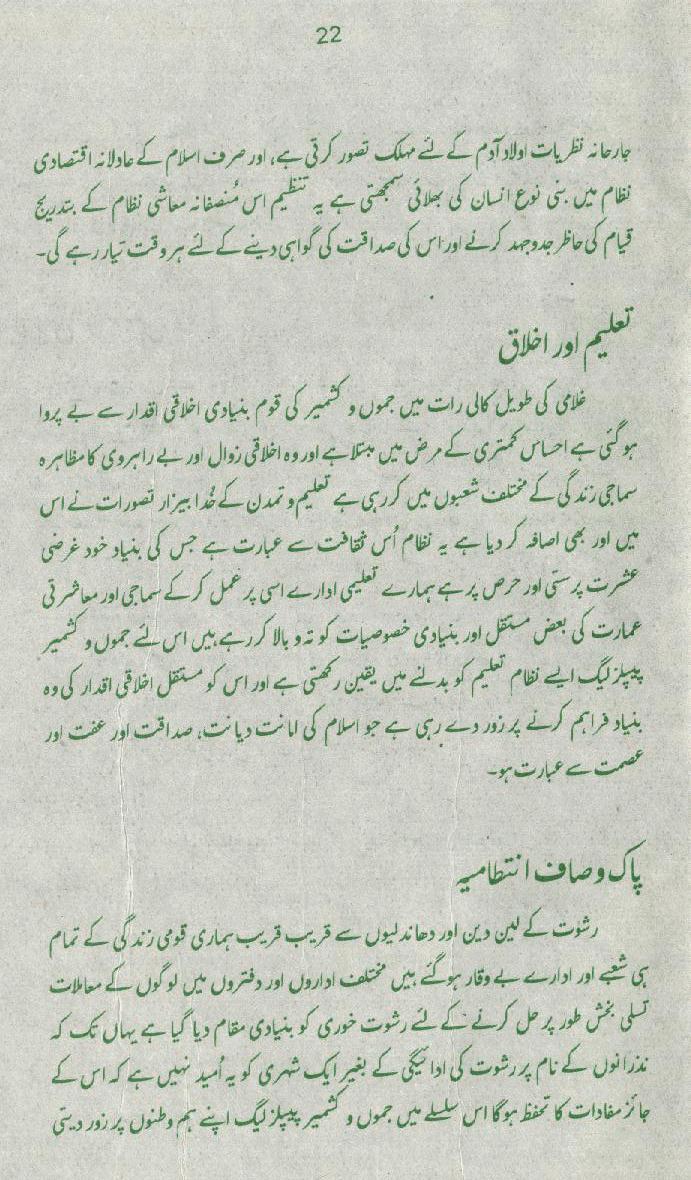 22
جارحانہ نظریات اولاد آدم کے لئے مہلک تصور کرتی ہے، اور صرف اسلام کے عادلانہ اقتصادی
نظام میں بنی نوع انسان کی بھلائی سمجھتی ہے یہ تنظیم اس مُنصفانہ معاشی نظام کے بتدریج
قیام کی خاطر جدوجہد کرنے اور اس کی صداقت کی گواہی دینے کے لئے ہر وقت تیار رہے گی۔
تعلیم اور اخلاق
غلامی کی طویل کالی رات میں جموں و کشمیر کی قوم بنیادی اخلاقی اقدار سے بے پروا
ہو گئی ہے احساس کمتری کے مرض میں مبتلا ہے اور وہ اخلاقی زوال اور بے راہروی کا مظاہرہ
سماجی زندگی کے مختلف شعبوں میں کر رہی ہے تعلیم و تمدن کے خُدا بیزار تصورات نے اس
میں اور بھی اضافہ کر دیا ہے یہ نظام اُس ثقافت سے عبارت ہے جس کی بنیاد خود غرضی
عشرت پرستی اور حرص پر ہے ہمارے تعلیمی ادارے اسی پر عمل کر کے سماجی اور معاشرتی
عمارت کی بعض مستقل اور بنیادی خصوصیات کو تہ و بالا کر رہے ہیں اس لئے جموں و کشمیر
پیپلز لیگ ایسے نظام تعلیم کو بدلنے میں یقین رکھتی ہے اور اس کو مستقل اخلاقی اقدار کی وہ
بنیاد فراہم کرنے پر زور دے رہی ہے جو اسلام کی امانت دیانت، صداقت اور عفت اور
عصمت سے عبارت ہو۔
پاک و صاف انتظامیہ
رشوت کے لین دین اور دھاندلیوں سے قریب قریب ہماری قومی زندگی کے تمام
ہی شعبے اور ادارے بے وقار ہو گئے ہیں مختلف اداروں اور دفتروں میں لوگوں کے معاملات
تسلی بخش طور پر حل کرنے کے لئے رشوت خوری کو بنیادی مقام دیا گیا ہے یہاں تک کہ
نذرانوں کے نام پر رشوت کی ادائیگی کے بغیر ایک شہری کو یہ اُمید نہیں ہے کہ اس کے
جائز مفادات کا تحفظ ہوگا اس سلسلے میں جموں و کشمیر پیپلز لیگ اپنے ہم وطنوں پر زور دیتی